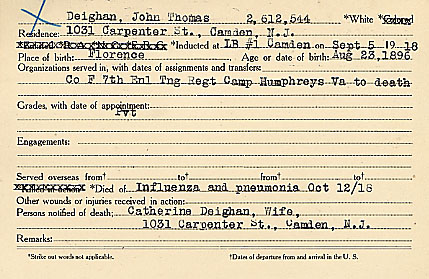 Deighan, John Thomas 2,612,544 *White *Colored
Residence: 1031 Carpenter St., Camden, N.J.
*Inducted at LB #1 Camden on Sept 5 1918
Place of birth: Florence Age or date of birth: Aug 23,1896
Organizations served in, with dates of assignments and transfers:
Co F 7th Enl Tng Regt Camp Humphreys Va to death
Grades, with date of appointment:
Pvt
Engagements:
Served overseas from† to† from† to†
*Killed in action *Died of Influenza and pneumonia Oct 12/18
Other wounds or injuries received in action:
Persons notified of death: Catherine Deighan, Wife,
1031 Carpenter St., Camden, N.J.
Remarks:
*Strike out words not applicable. †Dates of departure from and arrival in the U. S.